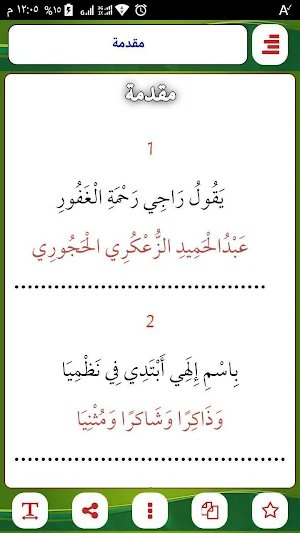 ١٢:٠٥ م
١٥%
مقدمة
مقدمة
1
يَقُولُ رَاجِي رَحْمَةِ الْغَفُورِ
عَبْدُالْحَمِيدِ الزُّعْكُرِي الْحَجُورِي
2
بِاسْمِ إِلَهِي أَبْتَدِي فِي نَظْمِيَا
وَذَاكِرًا وَشَاكِرًا وَمُثْنِيَا